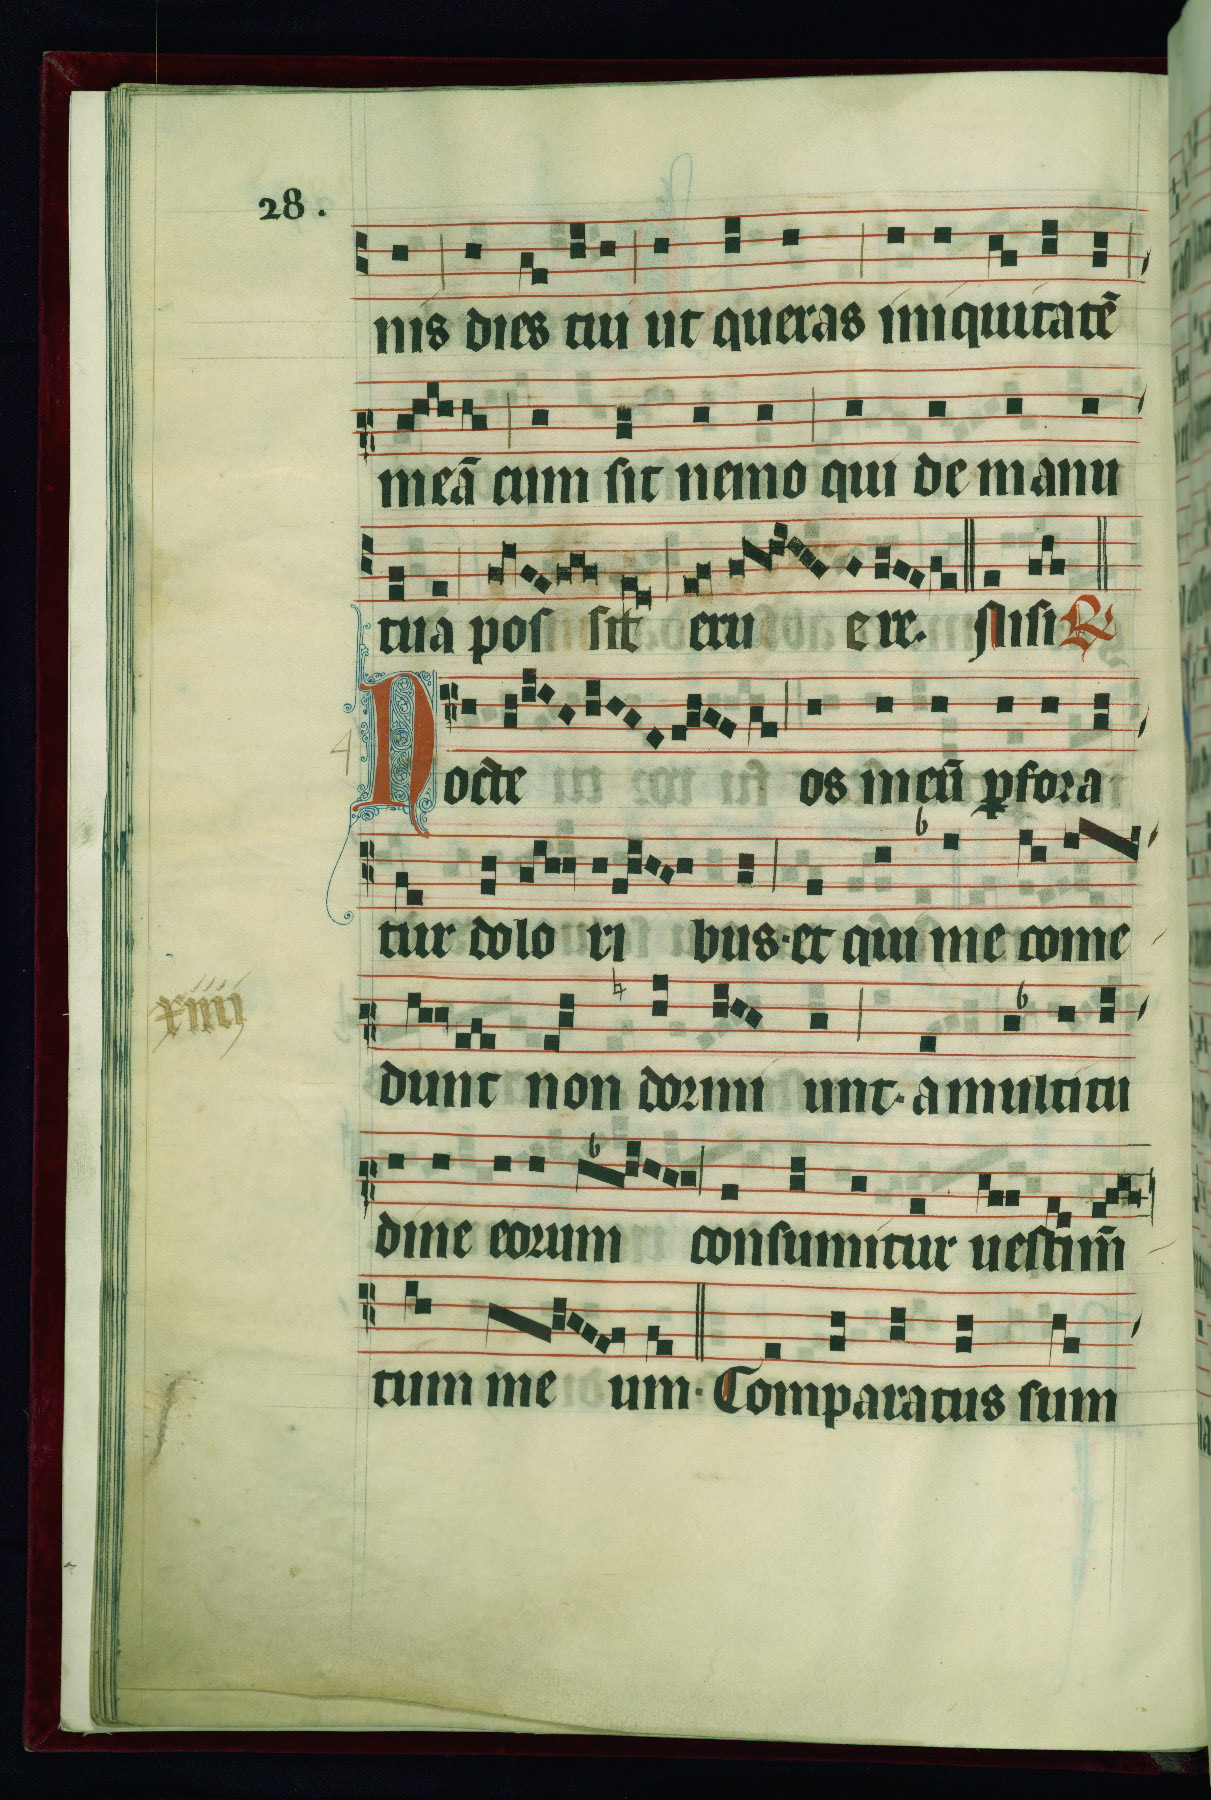 28.
nis dies tui ut queras iniquitatē
meā cum sit nemo qui de manu
tua pos sit eru ere. Nisi R
4
Nocte os meū ꝑfora
tur dolo ri bus· et qui me come
xiiii
dunt non dormi unt· a multitu
dine eorum consumitur uestim̄
tum me um· Comparatus sum